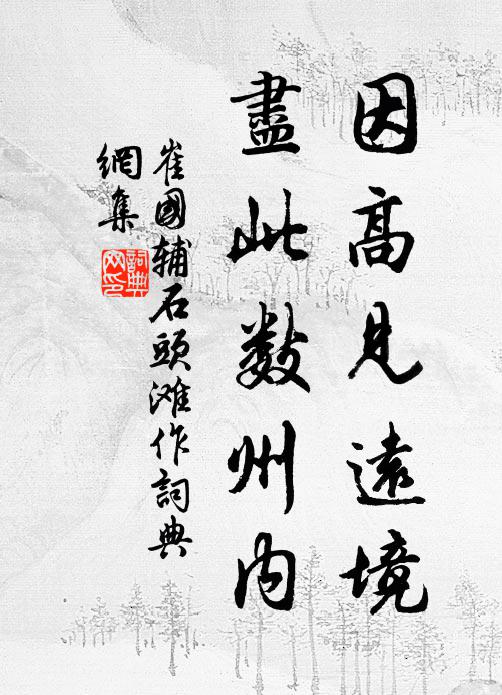 因高見遠境
盡此數州内
崔國輔石頭滩作詞典
網集
詞典
网印